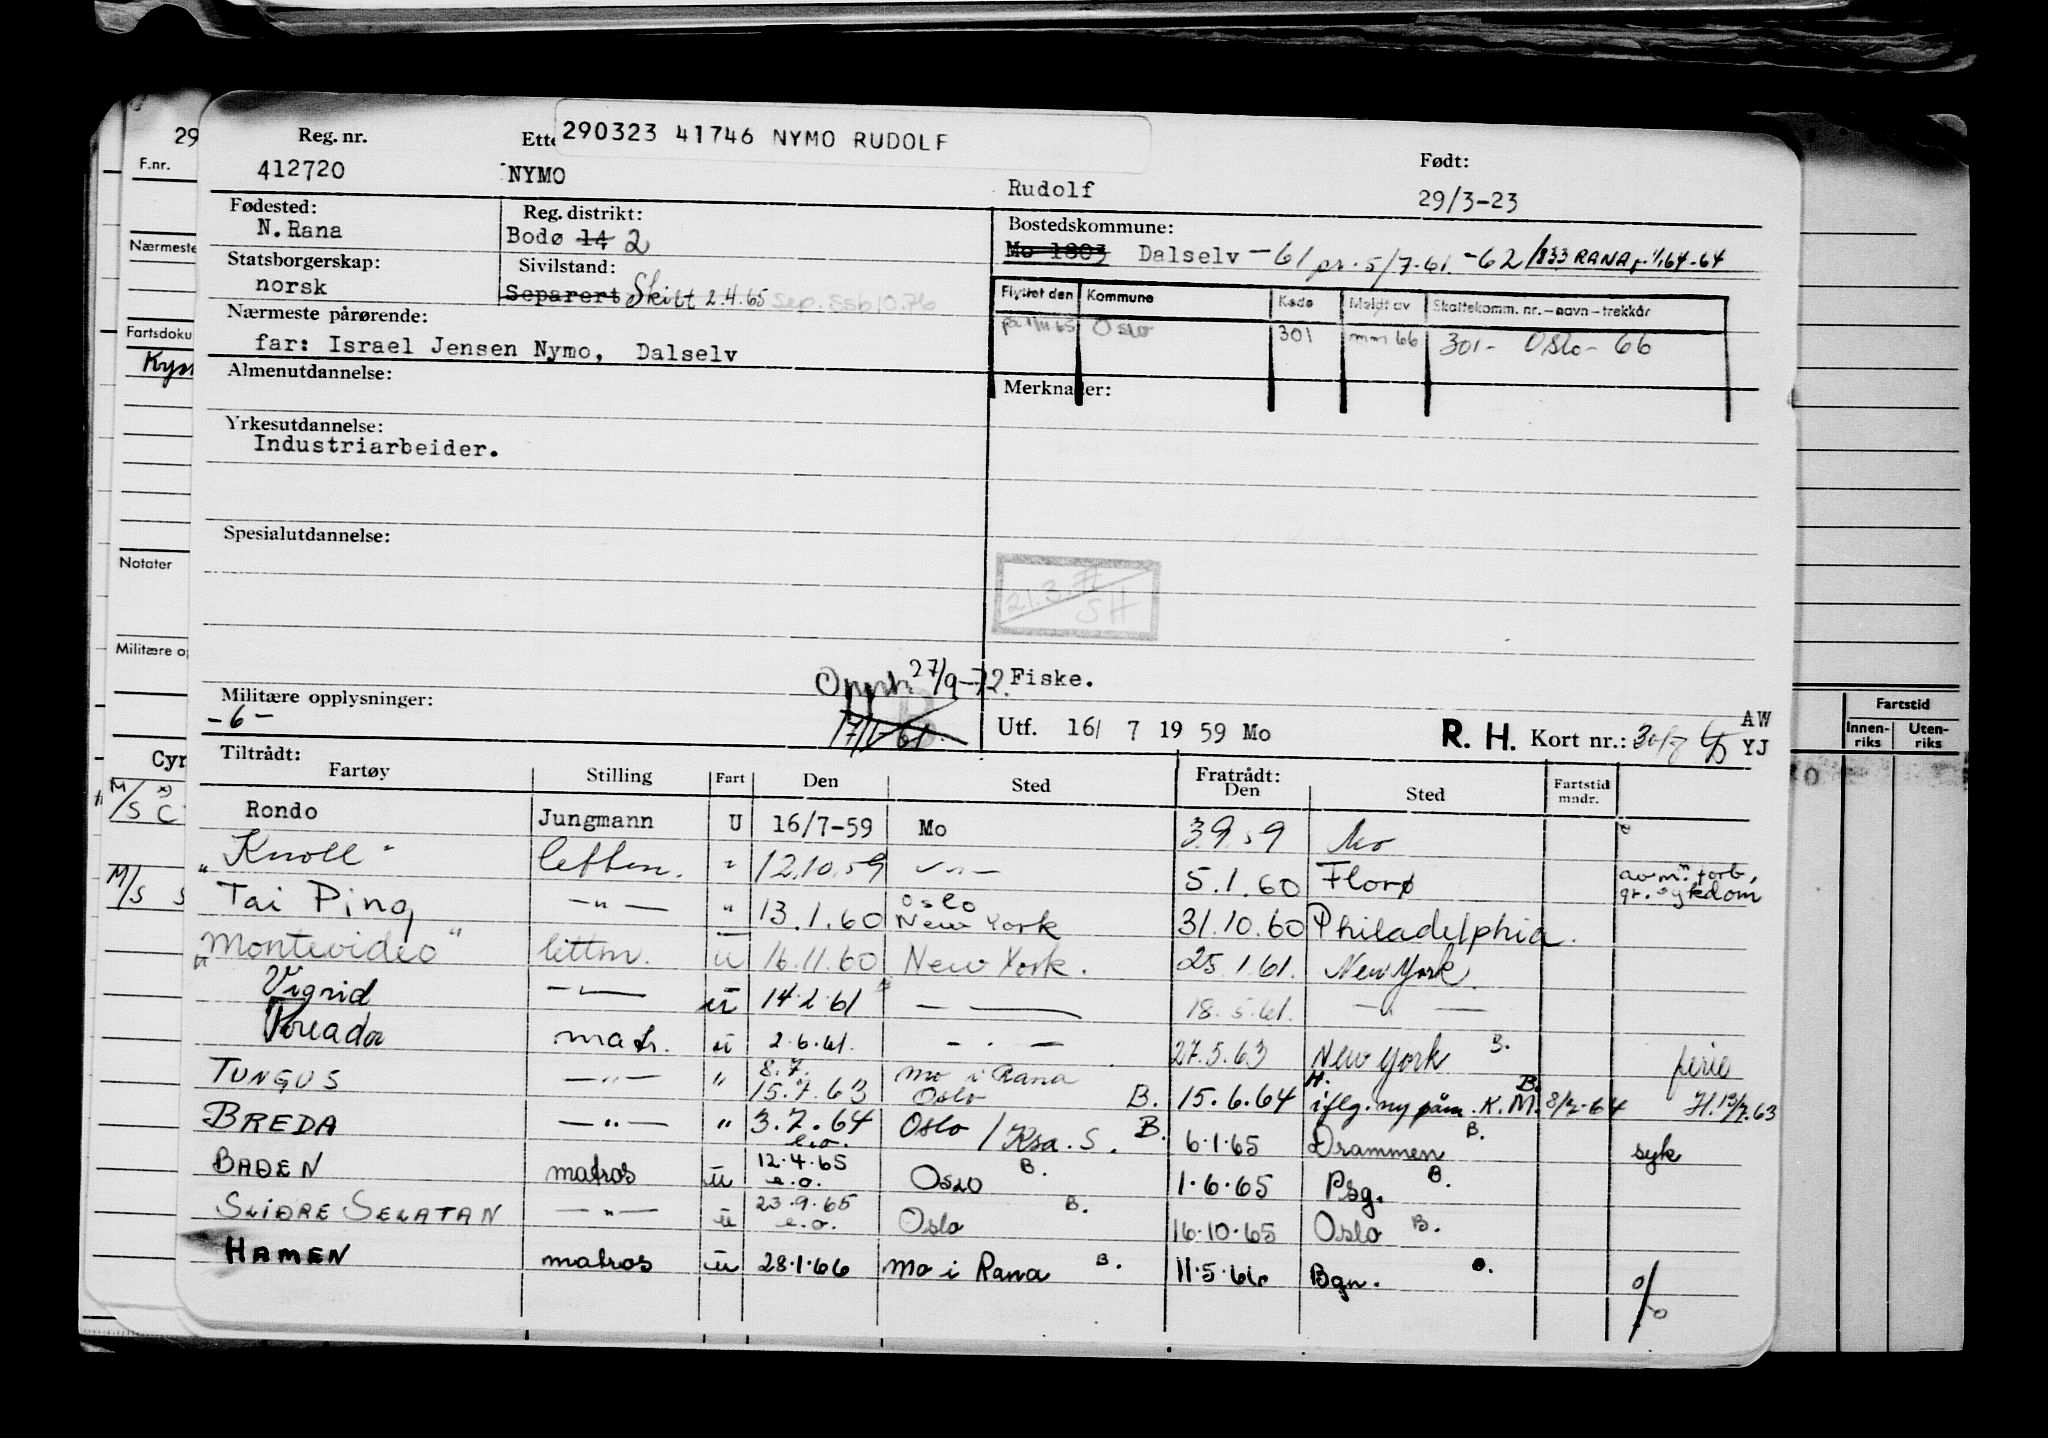 290323 41746 NYMO RUDOLF
Reg. nr. Født:
412720 NYMO Rudolf 29/3-23
Fødested: Reg. distrikt: Bostedskommune:
N. Rana Bodø 14 2 Mo 1803 Dalselv -61 pr. 5/7-61 -62 1833 RANA 1/1 64-64
Statsborgerskap: Sivilstand:
norsk Separert Skilt 2.4.65 Sep. Ssb 10.76
Flyttet den Kommune Kode Meldt av Skattekomm. nr. - navn - trekkår
Oslo 301 mm 66 301 - Oslo - 66
Nærmeste pårørende:
far: Israel Jensen Nymo, Dalselv
Almenutdannelse: Merknader:
Yrkesutdannelse:
Industriarbeider.
Spesialutdannelse:
21.3.
SH
27/9-72. Fiske.
Militære opplysninger:
-6-
Utf. 16/ 7 19 59 Mo R. H. Kort nr.: AW
YJ
Tiltrådt: Fratrådt:
Fartøy Stilling Fart Den Sted Den Sted Fartstid mndr.
Rondo Jungmann U 16/7-59 Mo 3.9.59 Mo
"Knoll" lettm. " 12.10.59 -"- 5.1.60 Florø av m. forb,
gr. sykdom
Tai Ping -"- " 13.1.60 Oslo
New York 31.10.60 Philadelphia.
"Montevideo" lettm. u 16.11.60 New York. 25.1.61. New York.
Vigrid -"- u 14.2.61 -"- 18.5.61. -"-
Toreador matr. u 2.6.61. -"- 27.5.63 New York B. ferie
TUNGUS -"- " 8.7.
15.7.63 Mo i Rana
Oslo B. 15.6.64 H. i flg. ny påm. K.M. B. 8/7-64 H. 13/7.63
BREDA -"- " 3.7.64
e.o. Oslo / Ksa. S. B. 6.1.65 Drammen B. syk
BADEN matros u 12.4.65
e.o. Oslo B. 1.6.65 Psg. B.
SLIDRE SELATAN -"- u 23.9.65
e.o. Oslo B. 16.10.65 Oslo B.
HAMEN matros u 28.1.66 Mo i Rana B. 11.5.66 Bgn. %
29
F.nr.
Nærmeste
Fartsdoku
Kys
Notater
Militære op
Cyr
M/S C
M/S S
Fartstid
Innen-
riks Uten-
riks